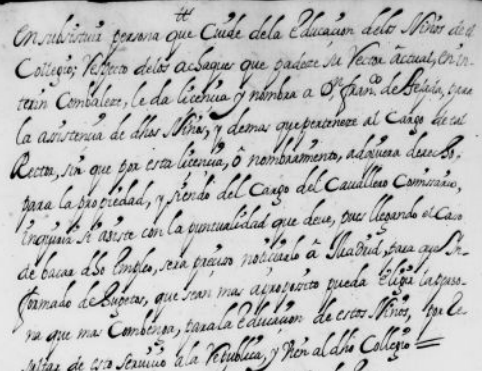 en subsistuir persona que Cuide dela Educacion delos Niños de el
Collegio; Respecto delos achaques que padeze su Rector actual, en in-
terin Combaleze, le da licencia y nombra a Dn. Franco. de para
la asistencia de dhos Niños, y demas que perteneze al Cargo de tal
Rector, sin que por esta licencia, ô nombramiento, adquiera derecho,
para la propiedad, y siendo del Cargo del Cavallero Comisario,
inquirir si asiste con la puntualidad que deve, pues llegando el Caso
de bacar dho Empleo, sera preciso noticiarlo â Madrid, para que In-
formado de Sugetos, que sean mas aproposito pueda Eligir la perso-
na que mas Combenga, para la Educacion de estos Niños, por Re-
sultar de esto servicio ala Republica, y vien al dho Collegio =